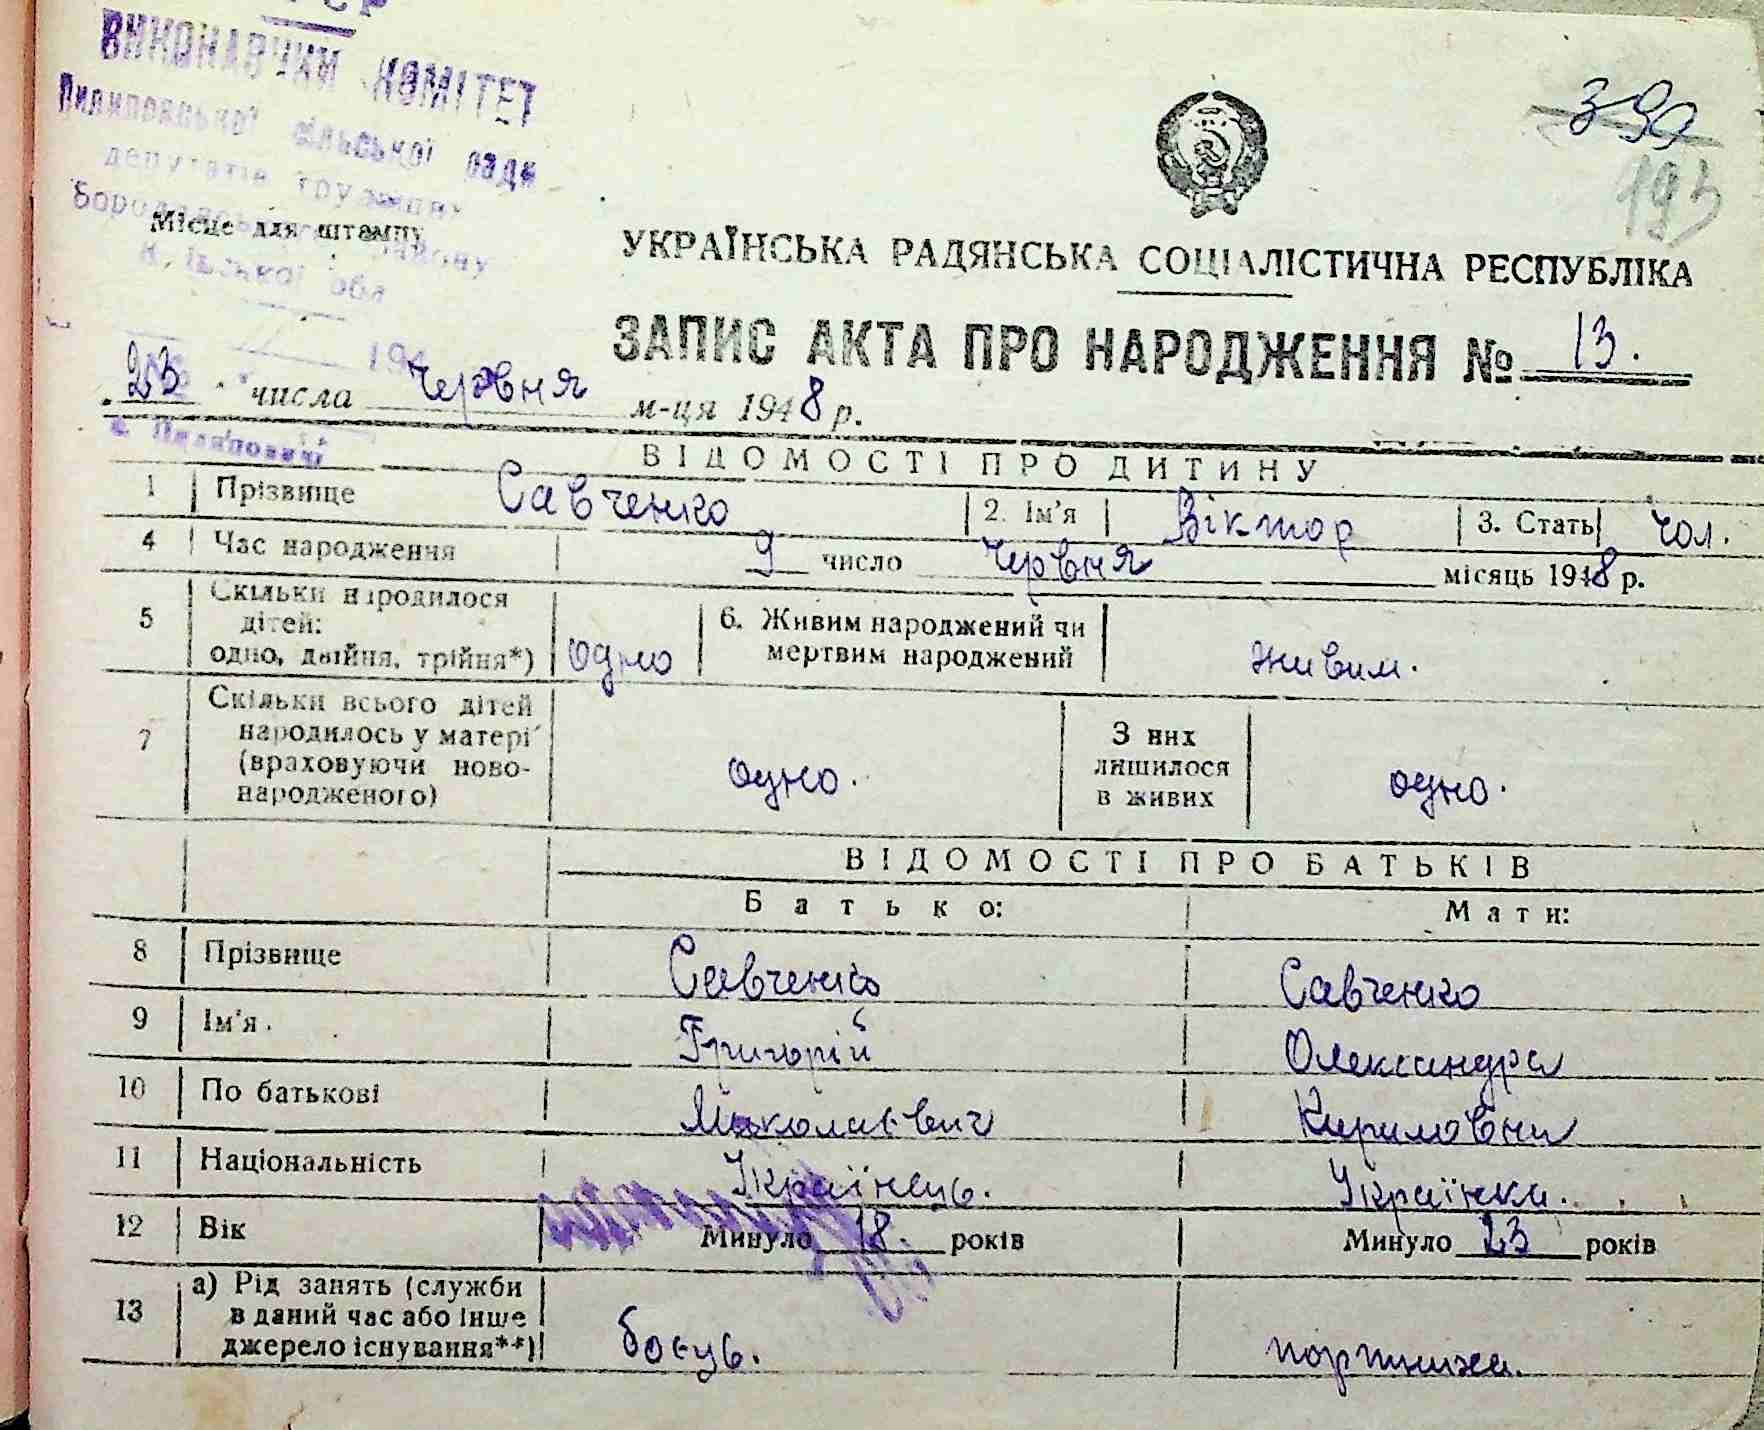 ВИКОНАВЧИЙ КОМІТЕТ
Пилиповської сільської ради
депутатів трудящих
Бородянського району
Київської обл
Місце для штампу
390
193
УКРАЇНСЬКА РАДЯНСЬКА СОЦІАЛІСТИЧНА РЕСПУБЛІКА
ЗАПИС АКТА ПРО НАРОДЖЕННЯ № 13.
23 числа Червня м-ця 1948 р.
с. Пилиповичі
ВІДОМОСТІ ПРО ДИТИНУ
1 Прізвище Савченко 2. Ім'я Віктор 3. Стать Чол.
4 Час народження 9 число Червня місяць 1948 р.
5 Скільки народилося дітей: одно, двійня, трійня*) одно 6. Живим народжений чи мертвим народжений живим.
7 Скільки всього дітей народилось у матері (враховуючи новонародженого) одно. З них лишилося в живих одно.
ВІДОМОСТІ ПРО БАТЬКІВ
Батько: Мати:
8 Прізвище Савченко Савченко
9 Ім'я. Григорій Олександра
10 По батькові Миколаєвич Киримовна
11 Національність Українець. Українка.
12 Вік Минуло 18. років Минуло 23 років
13 а) Рід занять (служби в даний час або інше джерело існування**) боєць. портниха.